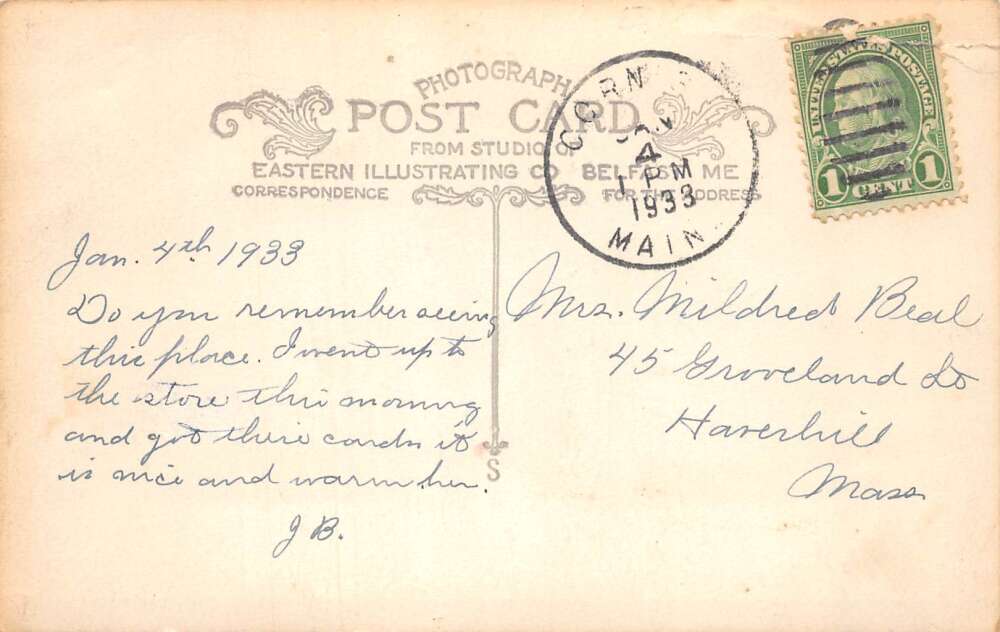 PHOTOGRAPH
POST CARD
FROM STUDIO OF
EASTERN ILLUSTRATING CO BELFAST, ME
CORRESPONDENCE
FOR THE ADDRESS
CORN
JAN
4
1 PM
1933
MAINE
UNITED STATES POSTAGE
1 CENT 1
Jan. 4th 1933
Do you remember seeing
this place. I went up to
the store this morning
and got these cards it
is nice and warm her.
J B.
S
Mrs. Mildred Beal
45 Groveland St
Haverhill
Mass